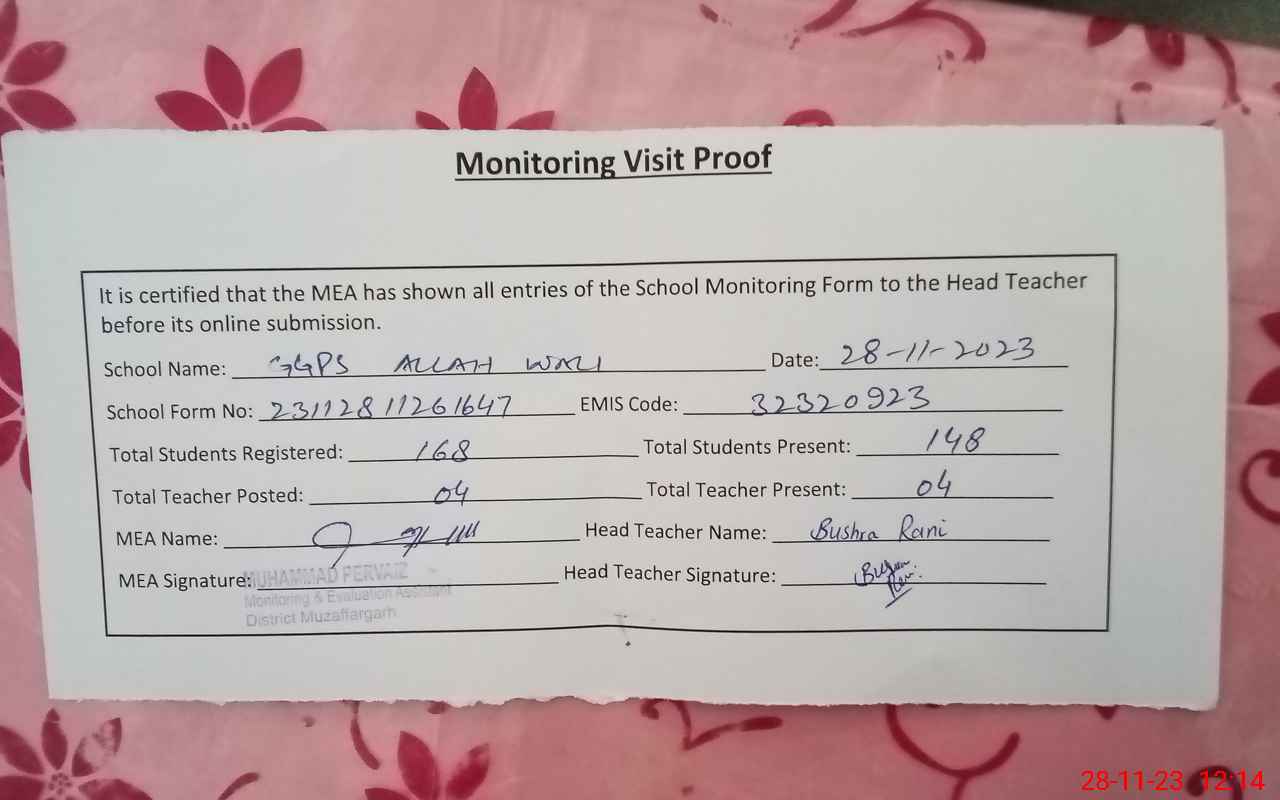 Monitoring Visit Proof
It is certified that the MEA has shown all entries of the School Monitoring Form to the Head Teacher
before its online submission.
School Name: GGPS ALLAH WALI Date: 28-11-2023
School Form No: 23112811261647 EMIS Code: 32320923
Total Students Registered: 168 Total Students Present: 148
Total Teacher Posted: 04 Total Teacher Present: 04
MEA Name: Head Teacher Name: Bushra Rani
MEA Signature: MUHAMMAD PERVAIZ Head Teacher Signature:
Monitoring & Evaluation Assistant
District Muzaffargarh
28-11-23 12:14